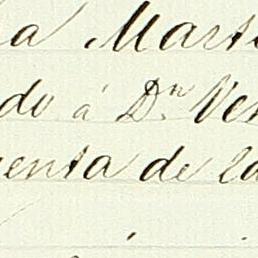 a Mart
do á Dn Ven
enta de la